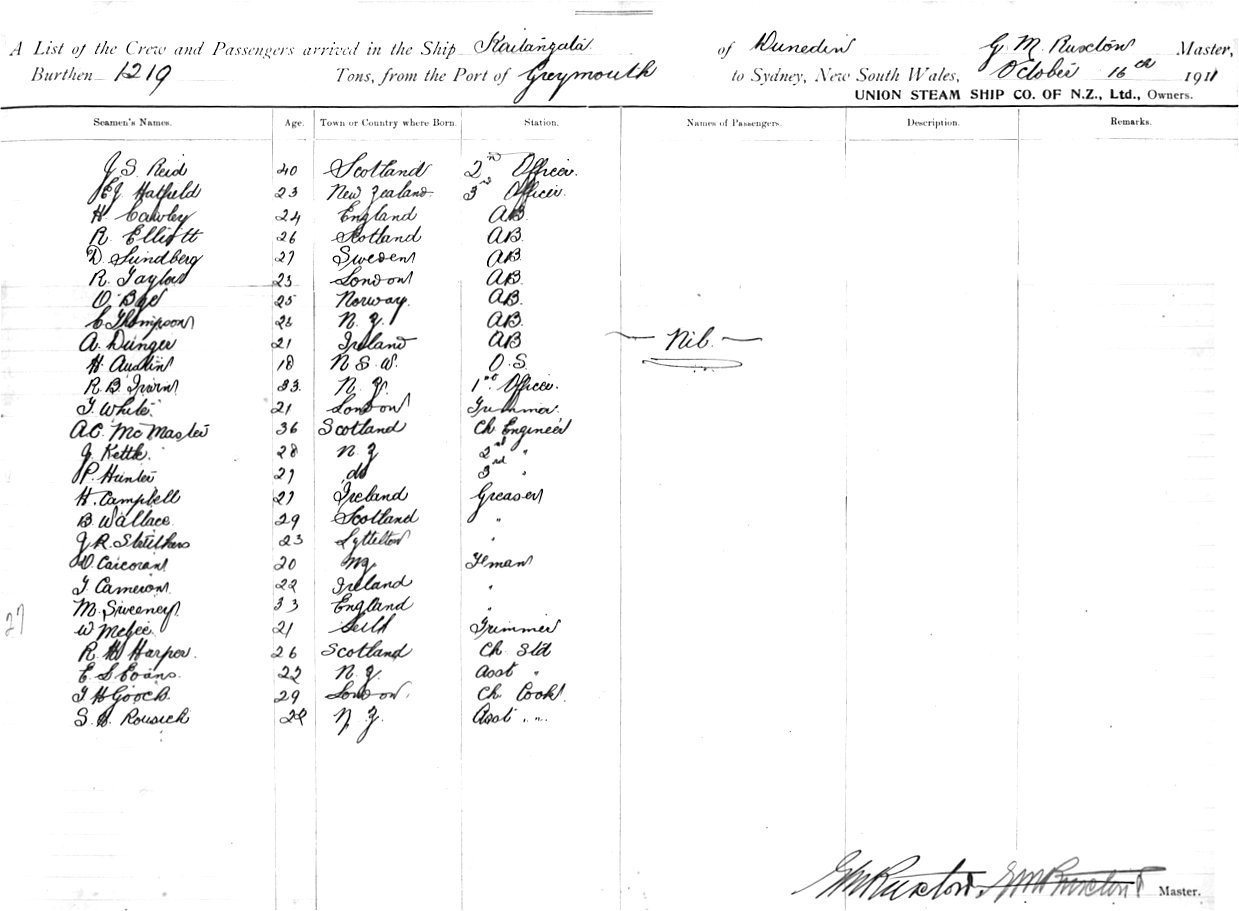 A List of the Crew and Passengers arrived in the Ship Kaitangata of Dunedin G. M. Ruxton Master,
Burthen 1219 Tons, from the Port of Greymouth to Sydney, New South Wales, October 16th 1911
UNION STEAM SHIP CO. OF N.Z., Ltd., Owners.
Seamen's Names. Age. Town or Country where Born. Station. Names of Passengers. Description. Remarks.
J. S. Reid 40 Scotland 2nd Officer.
Hatfield 23 New Zealand 3rd Officer.
H Cawley 24 England AB.
R. Elliott 26 Scotland AB.
D. Sundberg 27 Sweden AB.
R. Taylor 23 London AB.
O. Bye 25 Norway. AB.
C Thompson N. Z. AB.
A. Dunger 21 Ireland AB
— Nil. —
H. Austin 18 N S W. O. S.
R. B. Irwin 33. N. Z. 1st Officer.
T. White. 21 London Trimmer.
A C. McMaster 36 Scotland Ch Engineer
J. Kettle. 28 N. Z 2nd "
P. Hunter 27 do 3rd "
H. Campbell 27 Ireland Greaser
B. Wallace. 29 Scotland "
J. R. Struthers 23 Lyttelton "
D. Corcoran 20 Fman
T. Cameron. 22 Ireland "
M. Sweeney 33 England "
27
W McGee. 21 Trimmer
R. H Harper. 26 Scotland Ch. Std
E. S. Evans. 22 N. Z. Asst "
T H Gooch. 29 London. Ch. Cook.
S. Rousich N. Z. Asst " "
GM Ruxton. GM Ruxton Master.